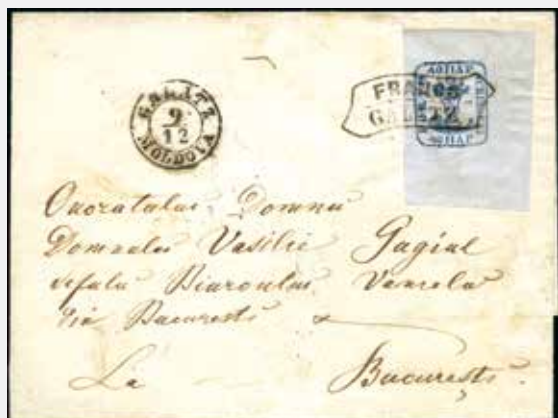 GALATZ
9/12
MOLDOVA
FRANCO
GALATZ
40 ПАР
40 ПАР
Onoratului Domnu
Domnului Vasilie Gagiul
sefulu Biaroului
din Bucuresti
La Bucuresti.